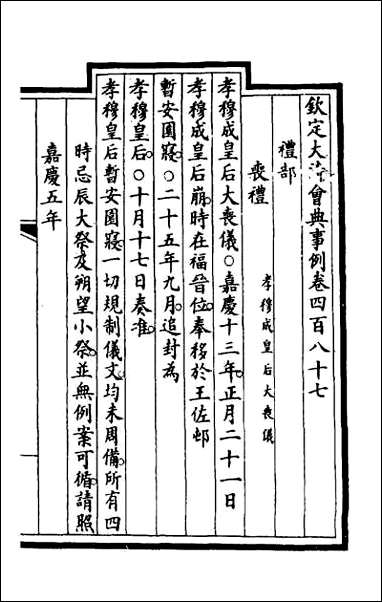 欽定大清會典事例卷四百八十七
禮部
喪禮 孝穆成皇后大喪儀
孝穆成皇后大喪儀○嘉慶十三年正月二十一日
孝穆成皇后崩時在福晉位奉移於王佐邨
暫安園寢○二十五年九月追封為
孝穆皇后○十月十七日奏准
孝穆皇后暫安園寢一切規制儀文均未周備所有四
時忌辰大祭及朔望小祭並無例案可循請照
嘉慶五年